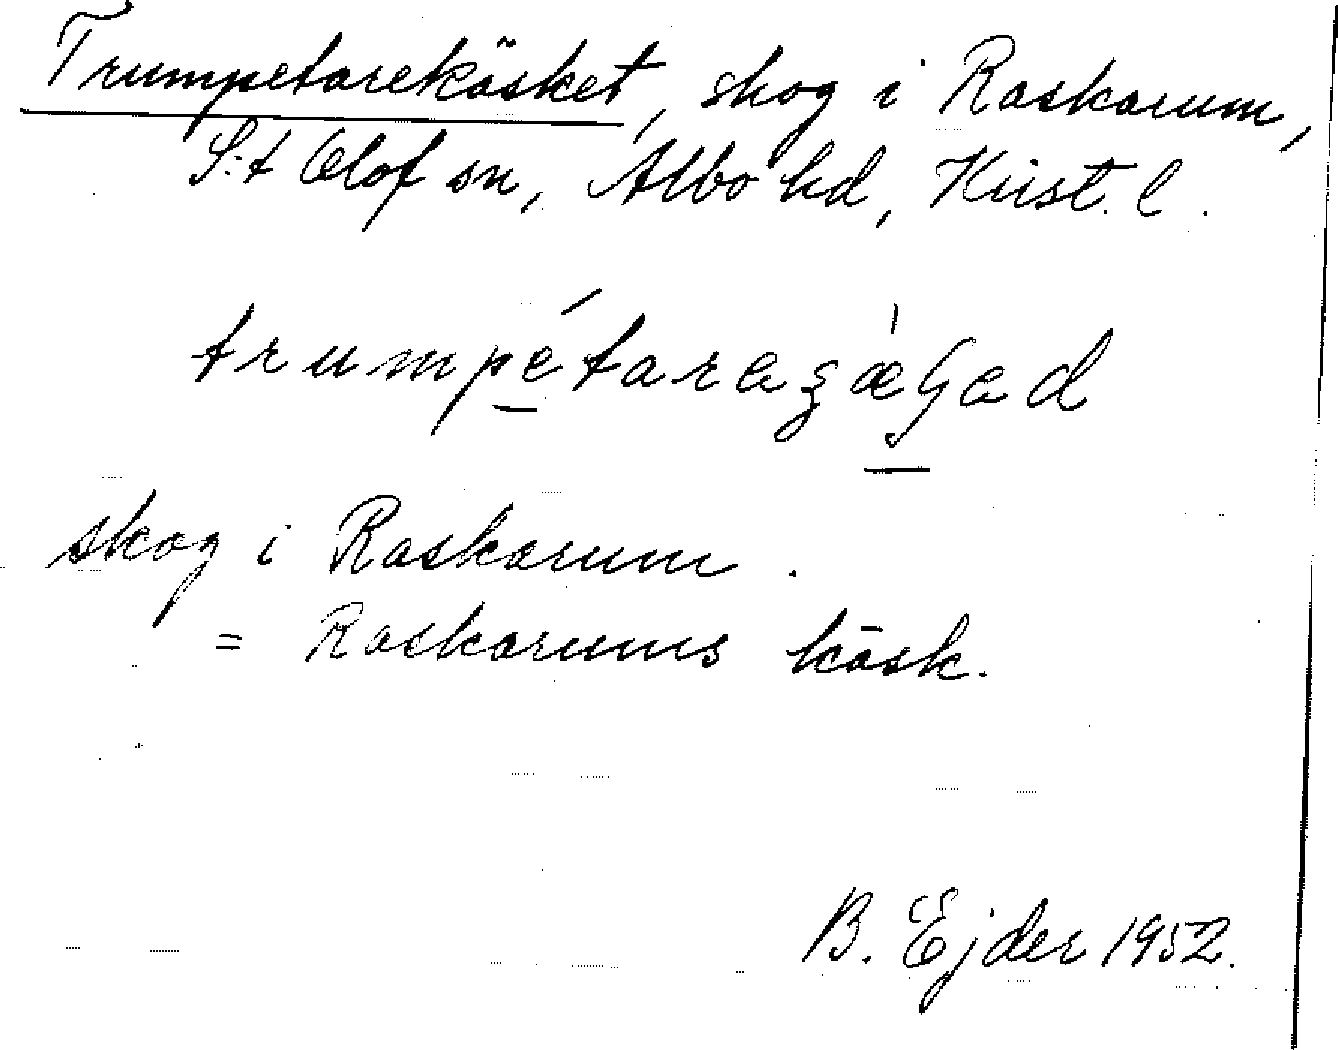 Trumpetarekäsket, skog i Raskarum,
S:t Olof sn, Albo hd, Krist. l.
skog i Raskarum.
= Raskarums käsk.
B. Ejder 1952.